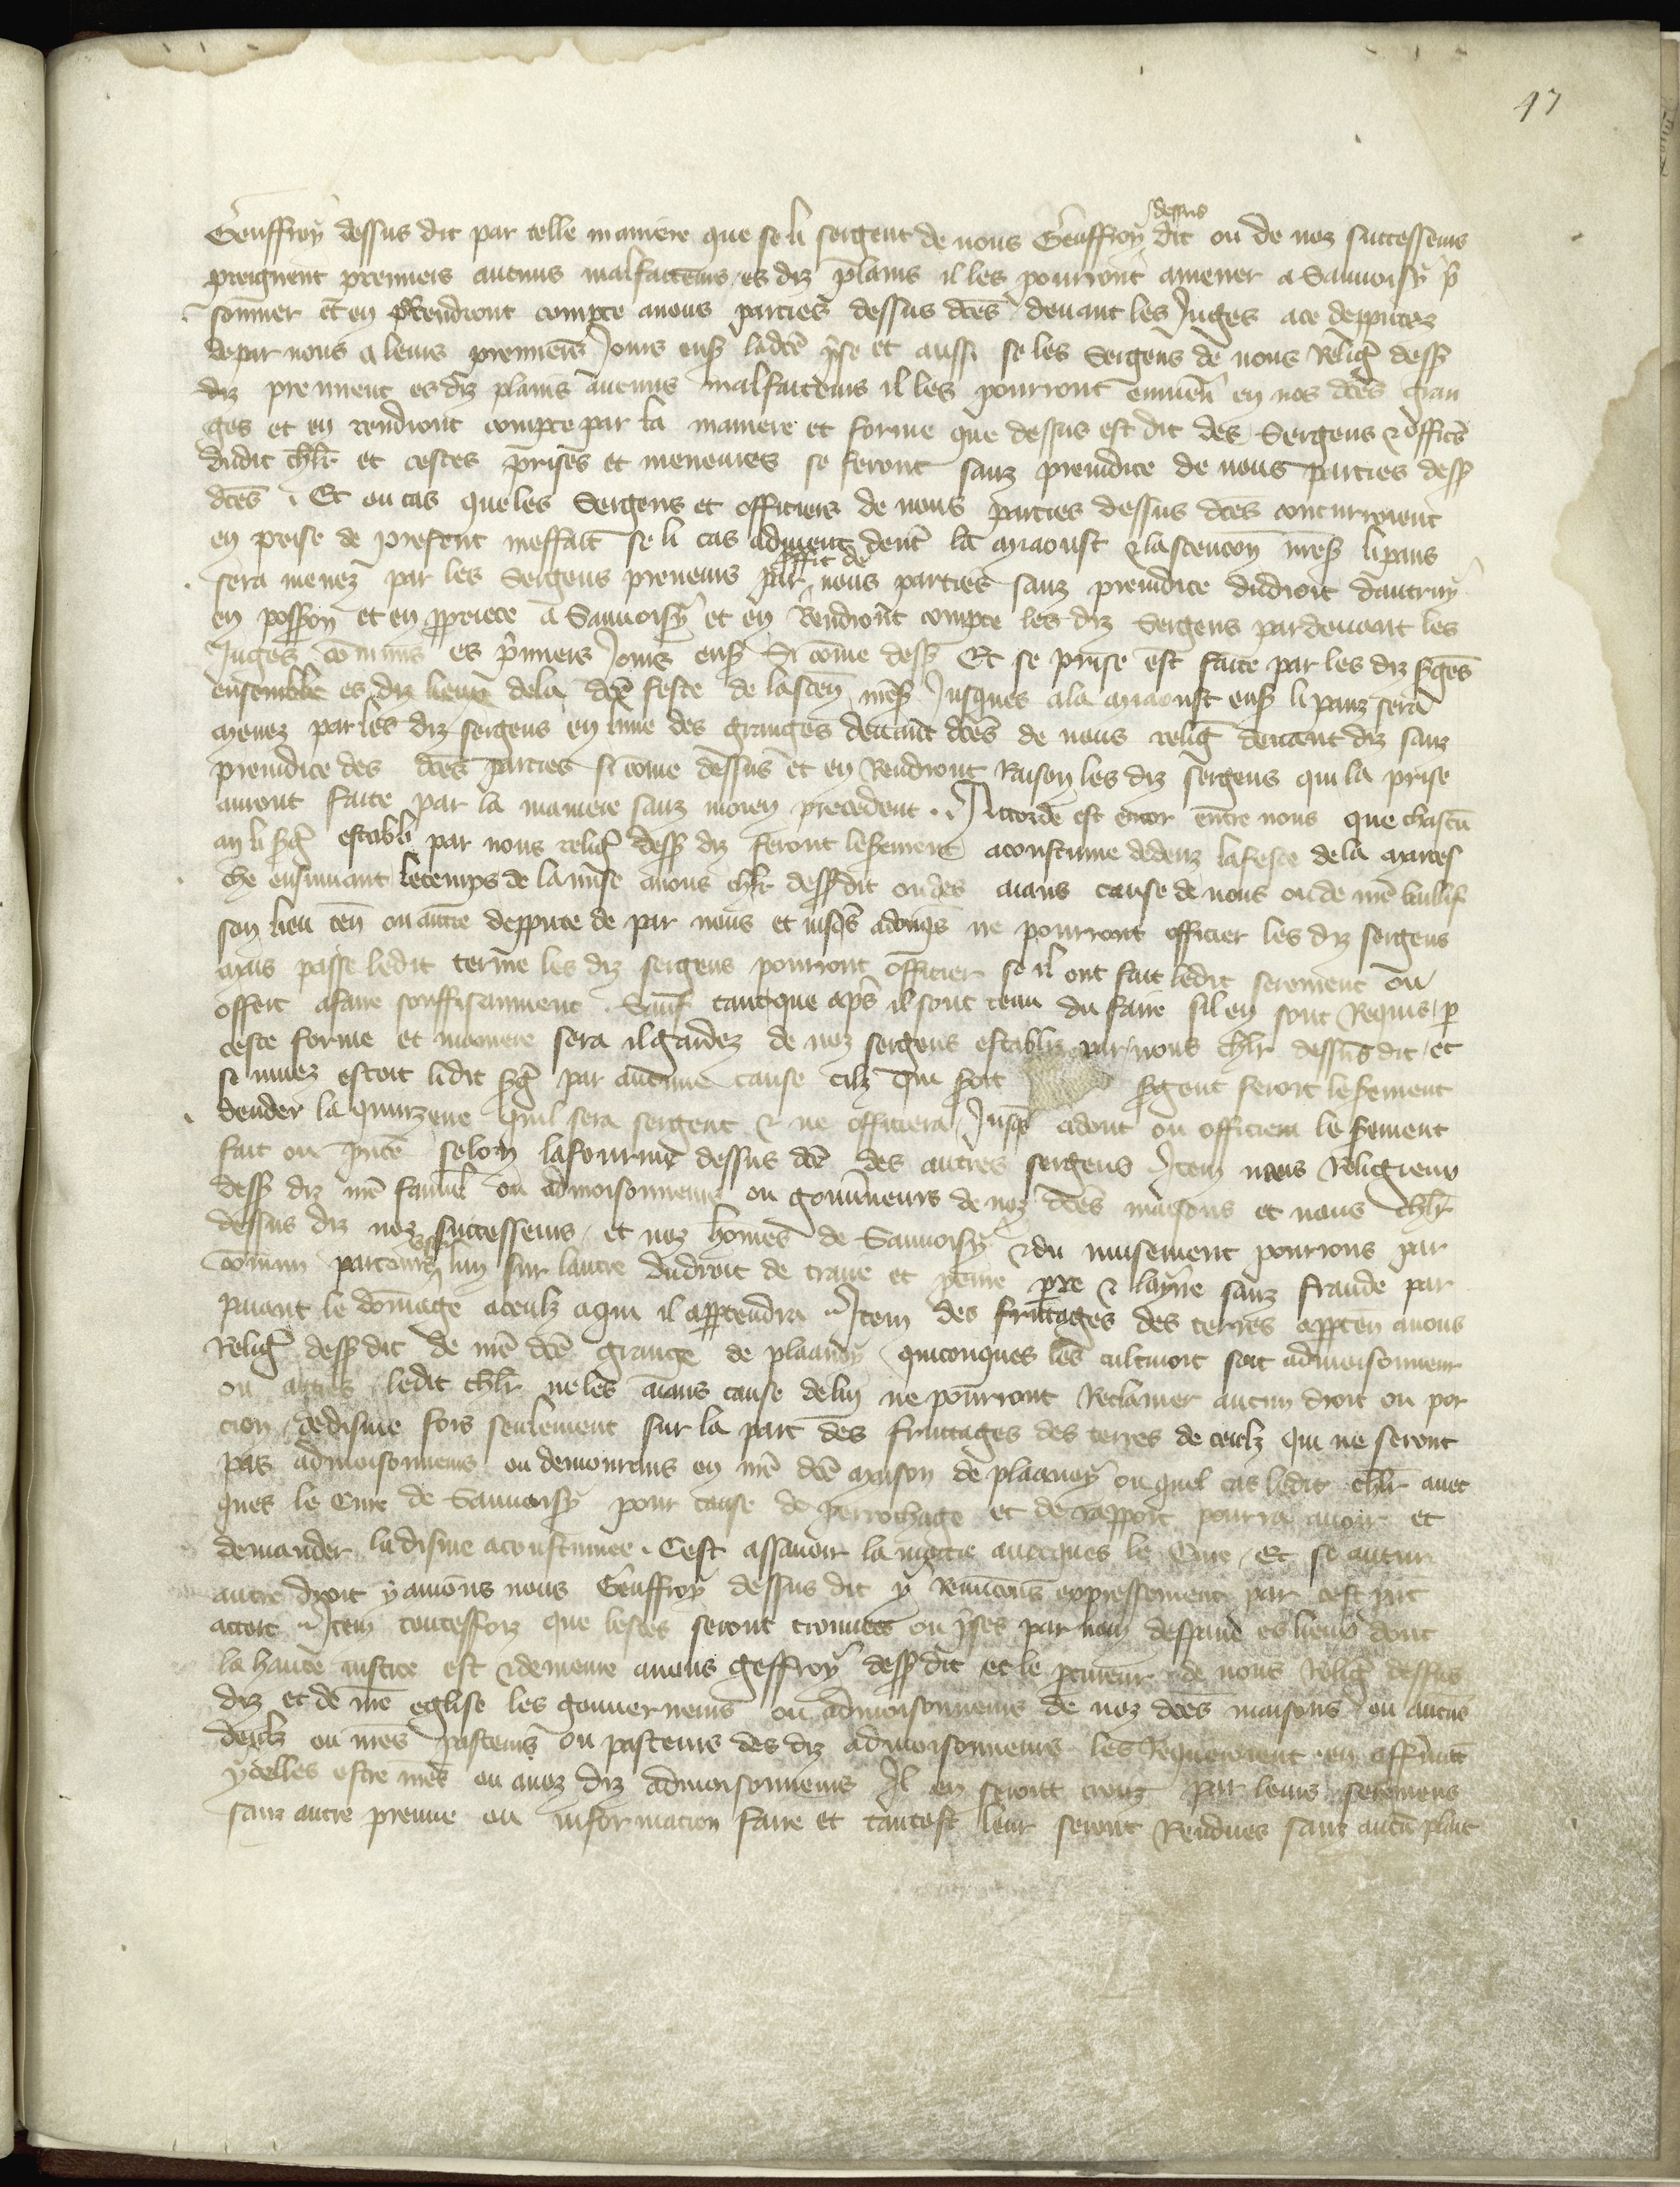 47
Geuffroy dessus dit par telle maniere que se li sergent de nous Geuffroy dessus dit ou de noz successeurs
preignent premiers aucuns malfacteurs es diz plains il les pourront amener a Sauuoisy p̃
sonnier et en rendront compte a nous parties dessus dc̃es deuant les Juges a ce depputez
de par nous a leurs premieres Jours ens̃ ladc̃e p̃se et aussi se les Sergens de nous Relig̃ dess̃
diz prennent es diz plains aucuns malfaiteurs il les pourront enmen̄ en nos dc̃es gran
ges et en rendront compte par la maniere et forme que dessus est dit des Sergens & offic̃
dudit chlr̃ et cestes prises et meneures se feront sanz preiudice de nous parties dess̃
dc̃es . Et ou cas que les Sergens et officiers de nous parties dessus dc̃es concurroient
en prise de present meffait se li cas aduient dent̃ la myaoust & lascencon nr̃es̃ li pans
sera menez par les Sergens preneurs par proffit de nous parties sanz preiudice dudroit dautruy
en poss̃on et en ppriete a Sauuoisy et en Rendront compte les diz Sergens pardeuant les
Juges cōmuns es p̃miers Jours ens̃ Si cōme dess̃ Et se prise est faite par les diz s̃gēs
ensemble es diz lieux dela dc̃e feste de lascen̄ nr̃es̃ Jusques a la myaoust ens̃ li panz sera
menez par les diz sergens en lune des granges deuant dc̃es de nous relig̃ deuant diz sanz
preiudice des dc̃es parties si cōme dessus et en Rendront Raison les diz sergens qui la prise
auront faite par la maniere sanz moien precedent . Accorde est encor entre nous que chascū
an li s̃g̃ establi par nous relig̃ dess̃ diz feront le s̃ement acoustume dedenz la feste de la marces
che ensuiuant le temps de la mise a nous chlr̃ dess̃ dit ou des aians cause de nous ou de nr̃e baillif
son lieu ten̄ ou autre deppute de par nous et iusq̃s adonq̃s ne pourront officier les diz sergens
Mais passe ledit terme les diz sergens pourront officier se il ont fait ledit serement ou
offert a faire souffisanment . Sauf tant que ap̃s il sont tenu du faire sil en sont Requis / p̱
ceste forme et maniere sera il gardez de noz sergens establiz par nous chlr̃ dessus dit / et
se muez estoit li dit s̃g̃ par aucune cause cilz qui s̃oit s̃gent feroit le s̃ement
dender la quinzene quil sera sergent & ne officiera Jusq̃ adont ou officiera le s̃ement
fait ou p̃nte selon la fourme dessus dc̃e des autres sergens Item nous Religieux
dess̃ diz nr̃e famil̃ ou admoisonneurs ou gouũneurs de noz dc̃es maisons et nous chlr̃
dessus diz noz successeurs / et noz homes de Sauuoisy & du musement pourrons par
cōmun parcours lun sur lautre dudroit de traue et prime ppre & layne sanz fraude par
paiant le dōmage a ceulz a qui il app̱tendra .. Item des fruitages des terres app̱ten̄ a nous
Relig̃ dess̃ dit de nr̃e dc̃e grange de plaanoy / quiconques les cultiuoit soit admoisonneur
ou autres ledit chlr̃ ne les aians cause de luy ne pourront Reclamer aucun droit ou por
cion de disme fors seulement sur la part des fruitages des terres de ceulz qui ne seront
pas admoisonneurs ou demourans en nr̃e dc̃e maison de plaanoy ou quel cas ledit chlr̃ auec
ques le Cure de Sauuoisy pour cause de perrochage et de rapport pourra auoir et
demander la disme acoustumee . Cest assauoir la moitie auecques le Cure / Et se aucun
autre droit y auons nous Geuffroy dessus dit y Renūcons expressement par cest pñt
accort .. Item concessons que bestes seront trouuees ou p̃ses par nom despaue es lieux dont
la haute iustice est & demeure a nous geffroy dess̃ dit et le procureur de nous Relig̃ dessus
diz et de nr̃e eglise les gouuerneurs ou admoisonneurs de noz dc̃es maisons ou aucũs
deulz ou nr̃es pasteurs ou pasteurs des diz admoisonneurs les Requeroient en affermãt
ycelles estre nr̃es ou a noz diz admoisonneurs Il en seront creuz par leurs seremens
sanz autre preuue ou informacion faire et tantost leur seront Rendues sanz aucũ plait